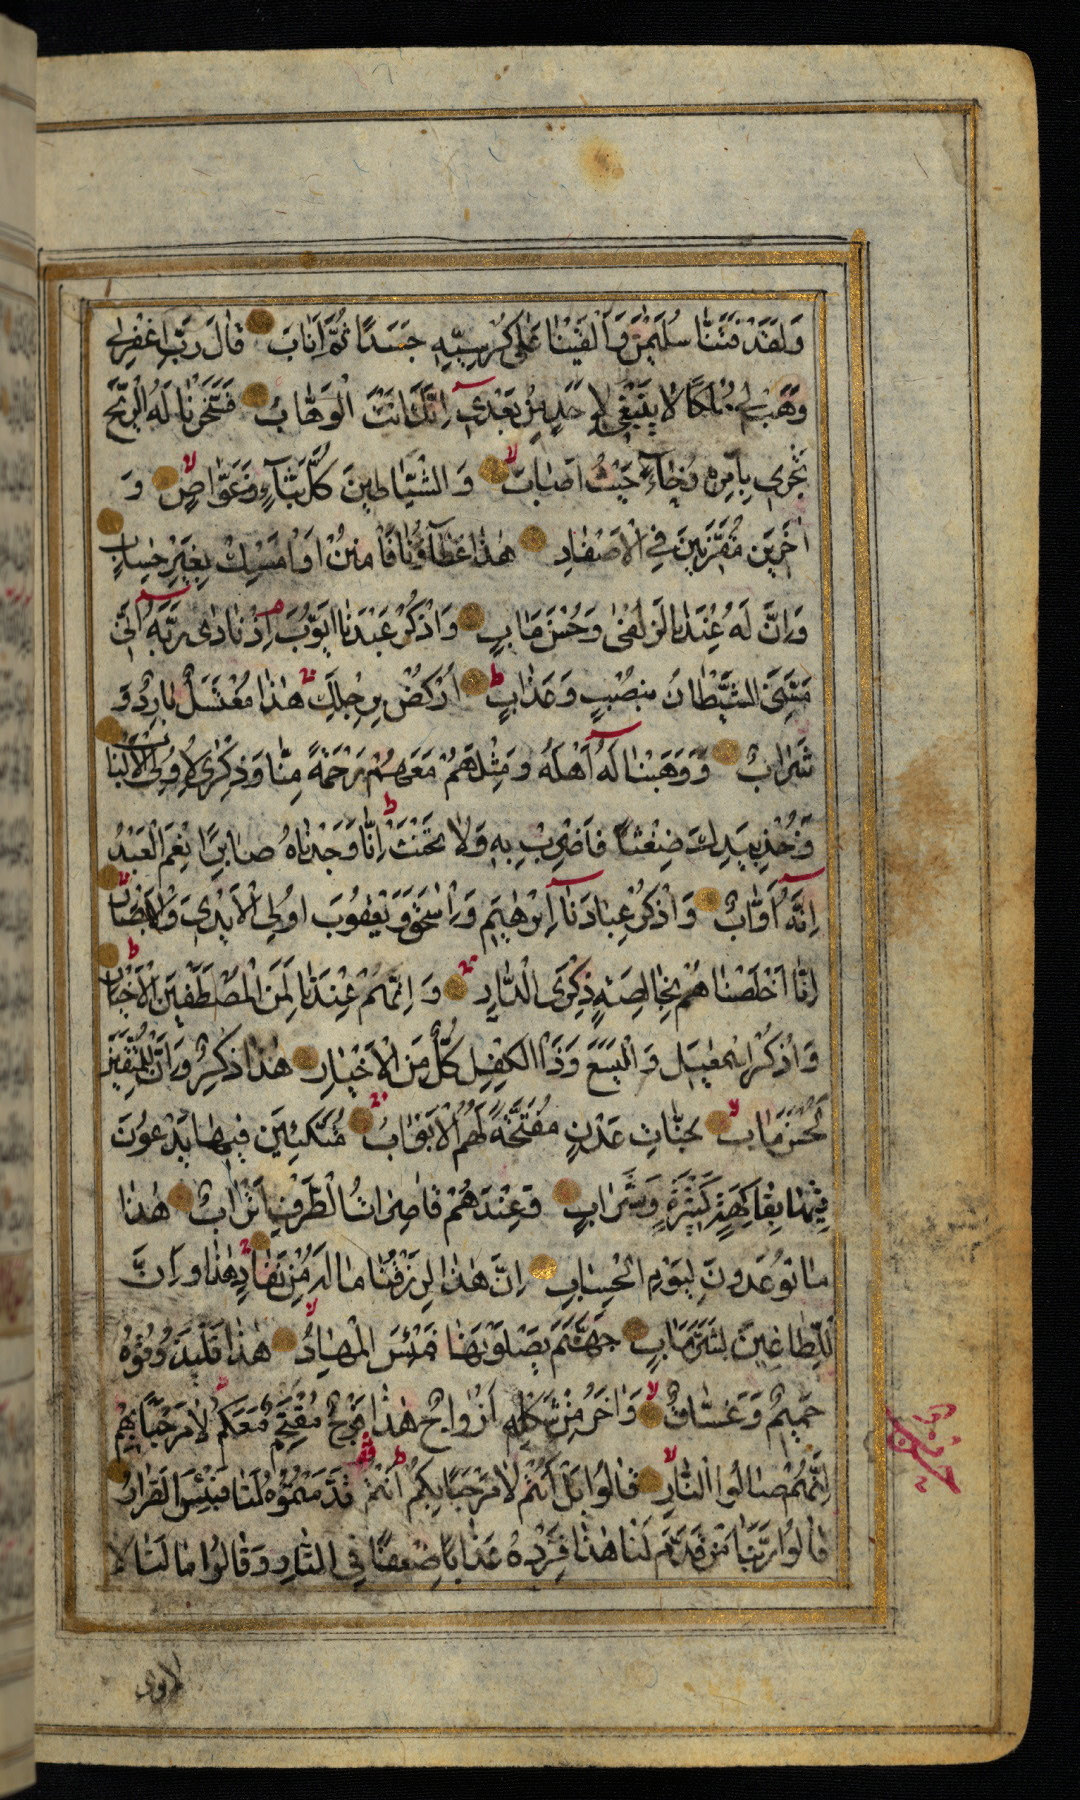 وَلَقَدْ فَتَنَّا سُلَيْمٰنَ وَاَلْقَيْنَا عَلٰى كُرْسِيِّهٖ جَسَدًا ثُمَّ اَنَابَ قَالَ رَبِّ اغْفِرْلِى
وَهَبْ لِى مُلْكًا لَا يَنْبَغِى لِاَحَدٍ مِنْ بَعْدِى اِنَّكَ اَنْتَ الْوَهَّابُ فَسَخَّرْنَا لَهُ الرِّيحَ
تَجْرِى بِاَمْرِهٖ رُخَاءً حَيْثُ اَصَابَ وَالشَّيَاطِينَ كُلَّ بَنَّاءٍ وَغَوَّاصٍ وَ
اٰخَرِينَ مُقَرَّنِينَ فِى الْاَصْفَادِ هٰذَا عَطَاؤُنَا فَامْنُنْ اَوْ اَمْسِكْ بِغَيْرِ حِسَابٍ
وَاِنَّ لَهُ عِنْدَنَا لَزُلْفٰى وَحُسْنَ مَاٰبٍ وَاذْكُرْ عَبْدَنَا اَيُّوبَ اِذْ نَادٰى رَبَّهُ اَنِّى
مَسَّنِىَ الشَّيْطَانُ بِنُصْبٍ وَعَذَابٍ اُرْكُضْ بِرِجْلِكَ هٰذَا مُغْتَسَلٌ بَارِدٌ وَ
شَرَابٌ وَوَهَبْنَا لَهُ اَهْلَهُ وَمِثْلَهُمْ مَعَهُمْ رَحْمَةً مِنَّا وَذِكْرٰى لِاُولِى الْاَلْبَابِ
وَخُذْ بِيَدِكَ ضِغْثًا فَاضْرِبْ بِهٖ وَلَا تَحْنَثْ اِنَّا وَجَدْنَاهُ صَابِرًا نِعْمَ الْعَبْدُ
اِنَّهُ اَوَّابٌ وَاذْكُرْ عِبَادَنَا اِبْرٰهِيمَ وَاِسْحٰقَ وَيَعْقُوبَ اُولِى الْاَيْدِى وَالْاَبْصَارِ
اِنَّا اَخْلَصْنَاهُمْ بِخَالِصَةٍ ذِكْرَى الدَّارِ وَاِنَّهُمْ عِنْدَنَا لَمِنَ الْمُصْطَفَيْنَ الْاَخْيَارِ
وَاذْكُرْ اِسْمٰعِيلَ وَالْيَسَعَ وَذَا الْكِفْلِ كُلٌّ مِنَ الْاَخْيَارِ هٰذَا ذِكْرٌ وَاِنَّ لِلْمُتَّقِينَ
لَحُسْنَ مَاٰبٍ جَنَّاتِ عَدْنٍ مُفَتَّحَةً لَهُمُ الْاَبْوَابُ مُتَّكِئِينَ فِيهَا يَدْعُونَ
فِيهَا بِفَاكِهَةٍ كَثِيرَةٍ وَشَرَابٍ وَعِنْدَهُمْ قَاصِرَاتُ الطَّرْفِ اَتْرَابٌ هٰذَا
مَا تُوعَدُونَ لِيَوْمِ الْحِسَابِ اِنَّ هٰذَا لَرِزْقُنَا مَا لَهُ مِنْ نَفَادٍ هٰذَا وَاِنَّ
لِلطَّاغِينَ لَشَرَّ مَاٰبٍ جَهَنَّمَ يَصْلَوْنَهَا فَبِئْسَ الْمِهَادُ هٰذَا فَلْيَذُوقُوهُ
حَمِيمٌ وَغَسَّاقٌ وَاٰخَرُ مِنْ شَكْلِهٖ اَزْوَاجٌ هٰذَا فَوْجٌ مُقْتَحِمٌ مَعَكُمْ لَا مَرْحَبًا بِهِمْ
اِنَّهُمْ صَالُوا النَّارِ قَالُوا بَلْ اَنْتُمْ لَا مَرْحَبًا بِكُمْ اَنْتُمْ قَدَّمْتُمُوهُ لَنَا فَبِئْسَ الْقَرَارُ
قَالُوا رَبَّنَا مَنْ قَدَّمَ لَنَا هٰذَا فَزِدْهُ عَذَابًا ضِعْفًا فِى النَّارِ وَقَالُوا مَا لَنَا لَا